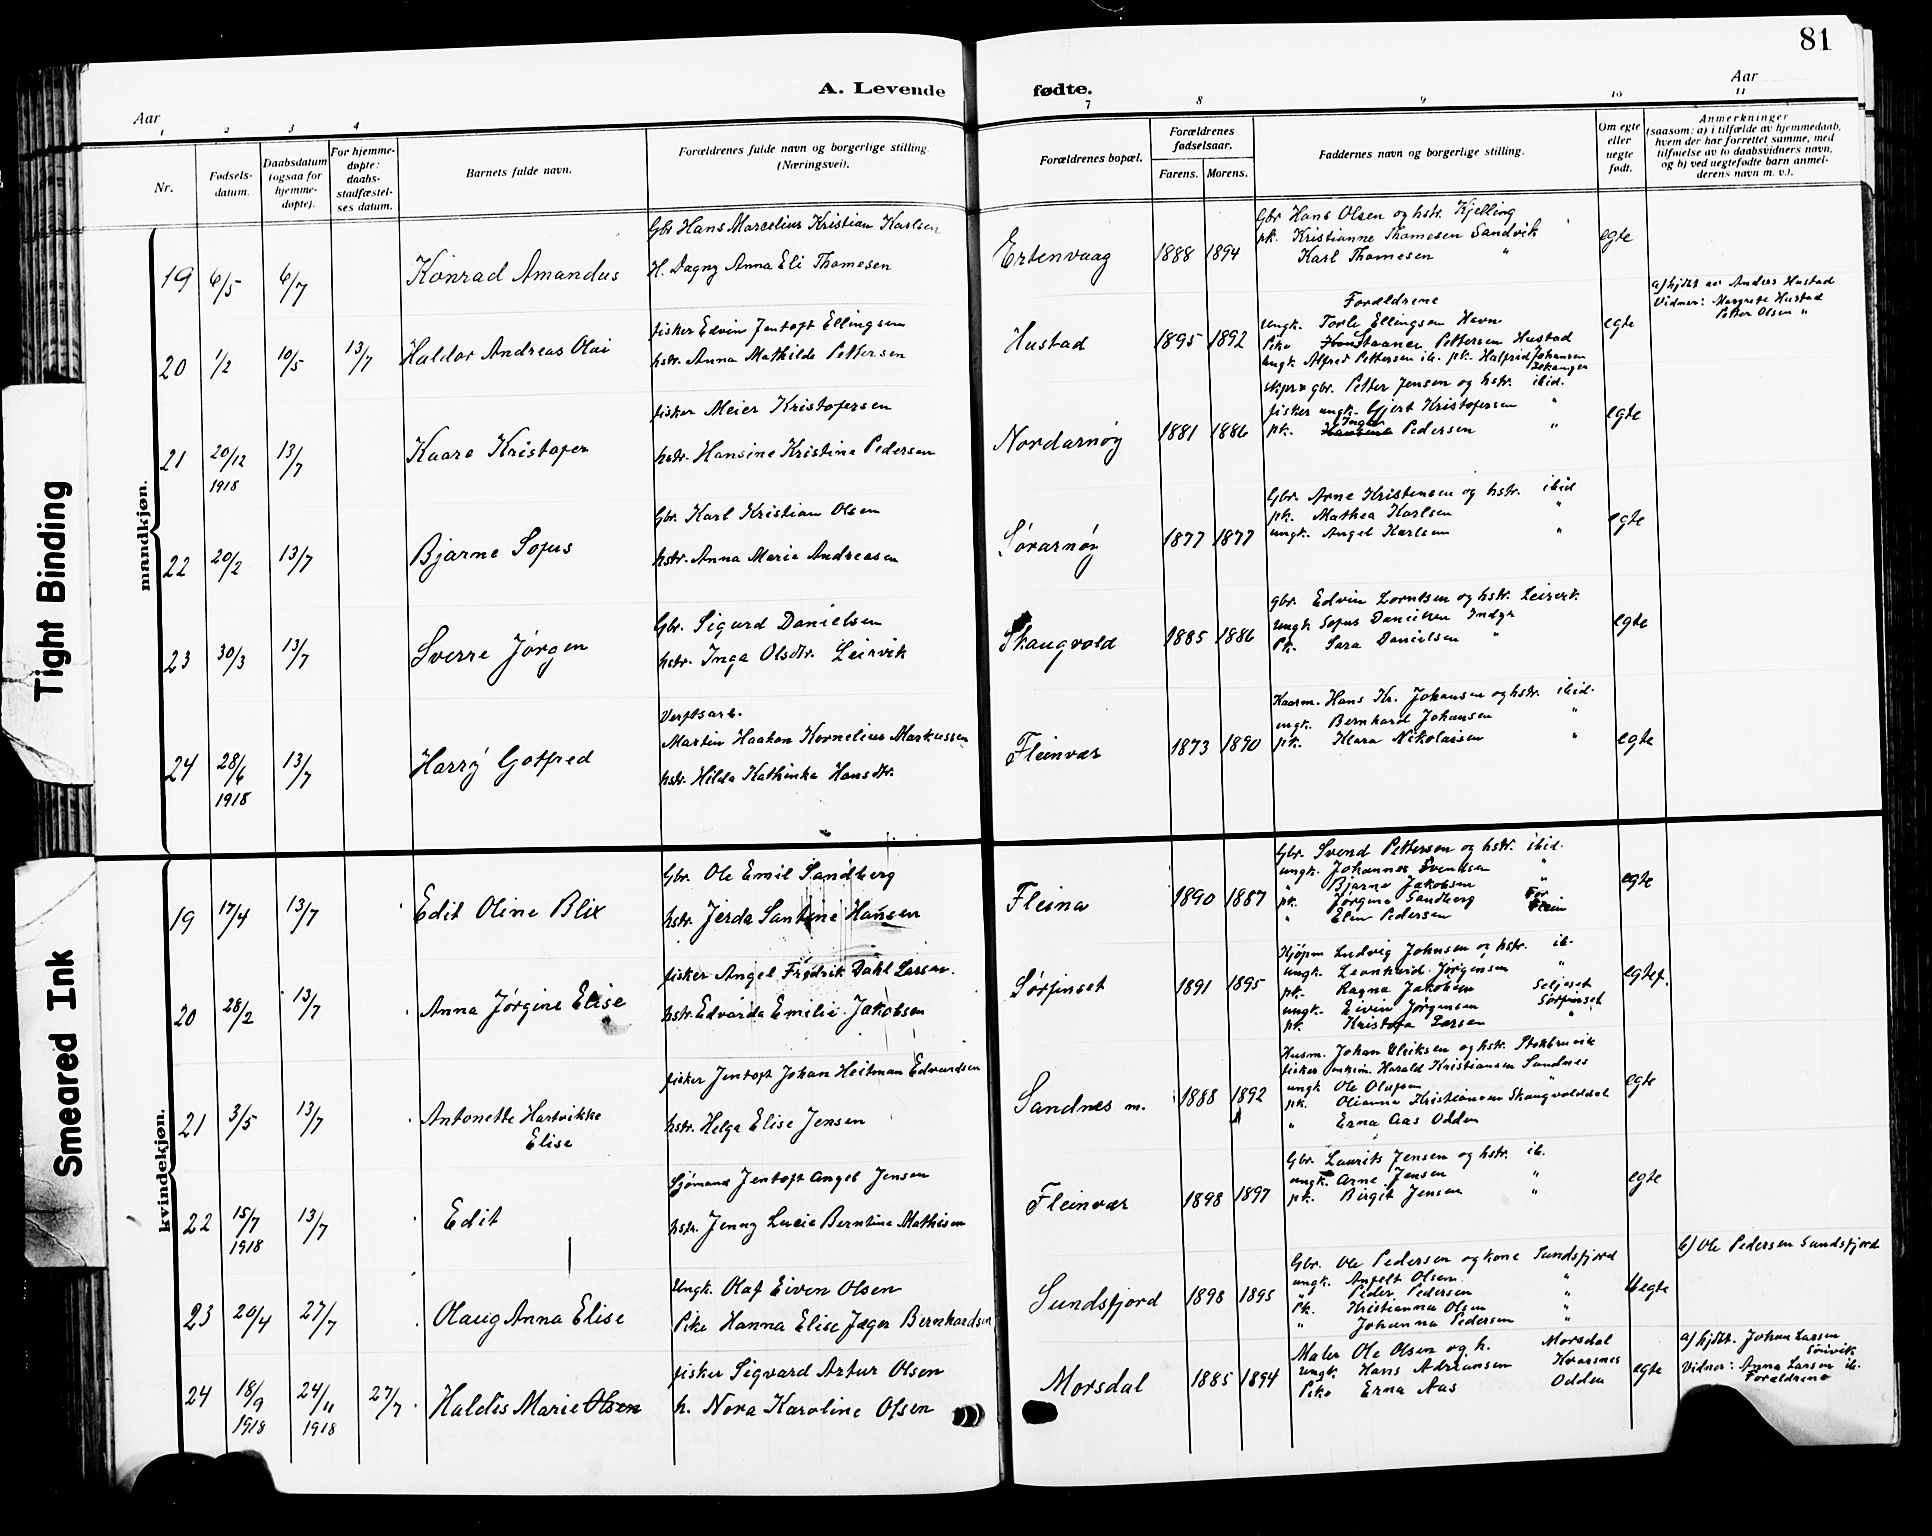 81
A. Levende
fødte.
Aar
Aar
1 2 3 4 7 8 9 10 11
Nr.
Fødsels-
datum.
Daabsdatum
(ogsaa for
hjemme-
døpte).
For hjemme-
døpte:
daabs-
stadfæstel-
ses datum.
Barnets fulde navn.
Forældrenes fulde navn og borgerlige stilling.
(Næringsvei).
Forældrenes bopæl.
Forældrenes
fødselsaar.
Farens. Morens.
Faddernes navn og borgerlige stilling.
Om egte
eller
uegte
født.
Anmerkninger
(saasom: a) i tilfælde av hjemmedaab,
hvem der har forrettet samme, med
tilføielse av to daabsvidners navn,
og b) ved uegtefødte barn anmel-
derens navn m. v.).
Tight Binding
Smeared Ink
mandkjøn.
kvindekjøn.
19 6/5 6/7 Konrad Amandus
Gbr Hans Marcelius Kristian Karlsen
H. Dagny Anna Eli Thomesen
Ertenvaag 1888 1894
Gbr Hans Olsen og hstr. Kjelling
pk. Kristianne Thomesen Sandvik
Karl Thomesen "
egte
20 1/2 10/5 13/7 Haldor Andreas Olai
fisker Edvin Jentoft Ellingsen
hstr. Anna Mathilde Pettersen
Hustad 1895 1892
Forældrene
ungk. Torle Ellingsen Havn
Pike Staanes Pettersen Hustad
ungk. Alfred Pettersen ib. pk. Halfrid Johansen
egte
a) hjdbt av Anders Hustad
Vidner: Margrete Hustad
Petter Olsen "
21 20/12 1918 13/7 Kaare Kristofer
fisker Meier Kristofersen
hstr. Hansine Kristine Pedersen
Nordarnøy 1881 1886
skpr og gbr. Petter Jensen og hstr. ibid.
fisker ungk. Gjert Kristofersen "
pk. Inga Pedersen "
egte
22 20/2 13/7 Bjarne Sofus
Gbr. Karl Kristian Olsen
hstr. Anna Marie Andreasen
Sørarnøy 1877 1877
Gbr. Arne Kristensen og hstr. ibid
pk. Mathea Karlsen "
ungk. Angel Karlsen "
egte
23 30/3 13/7 Sverre Jørgen
Gbr. Sigurd Danielsen
hstr. Inga Olsdtr. Leirvik
Skaugvold 1885 1886
gbr. Edvin Lorntsen og hstr. Leirvk.
ungk Sofus Danielsen Indyr
Pk. Sara Danielsen "
egte
24 28/6 1918 13/7 Harry Gotfred
Verftsarb.
Martin Haakon Kornelius Markussen
hstr. Hilda Kathinka Hansdtr.
Fleinvær 1873 1890
Kaarm. Hans Kr. Johansen og hstr. ibid.
ungk. Bernhard Johansen "
pk. Klara Nikolaisen "
egte
19 17/4 13/7 Edit Oline Blix
Gbr. Ole Emil Sandberg
hstr. Jerda Santine Hansen
Fleina 1890 1887
Gbr. Svend Pettersen og hstr. ibid.
ungk. Johannes Svendsen "
" Bjarne Jakobsen "
pk. Jørgine Sandberg
" Elen Pedersen
egte
20 28/2 13/7 Anna Jørgine Elise
fisker Angel Fredrik Dahl Larsen.
hstr. Edvarda Emilie Jakobsen
Sørfinset 1891 1895
Kjøpm Ludvig Johnsen og hstr. ib.
ungk. Leonhard Jørgensen "
pk. Ragna Jakobsen Seljeset
ungk. Eivin Jørgensen Sørfinset
pk. Kristofa Larsen "
egtef.
21 3/5 13/7 Antonette Hartvikke
Elise
fisker Jentoft Johan Heitman Edvardsen
hstr. Helga Elise Jensen
Sandnes m. 1888 1892
Husm. Johan Ulriksen og hstr. Stokbruvik
fisker enkem Harald Kristiansen Sandnes
ungk Ole Olufsen "
pk. Olianna Kristiansen Skaugvoldsdal
" Erna Aas Odden
egte
22 15/7 1918 13/7 Edit
Sjømand Jentoft Angel Jensen
hstr. Jenny Lucie Berntine Mathisen
Fleinvær 1898 1897
Gbr. Laurits Jensen og hstr. ib.
ungk. Arne Jensen "
pk. Birgit Jensen "
egte
23 20/4 27/7 Olaug Anna Elise
Ungk. Olaf Eiven Olsen
Pike Hanna Elise Jæger Bernhardsen
Sundsfjord 1898 1895
Gbr. Ole Pedersen og kone Sundsfjord
ungk. Anfelt Olsen "
" Peder Pedersen "
Pk. Kristianna Olsen "
" Johanna Pedersen "
Uegte
b) Ole Pedersen Sundsfjord
24 18/9 1918 24/11 1918 27/7 Haldis Marie Olsen
fisker Sigvard Artur Olsen
h. Nora Karoline Olsen
Morsdal 1885 1894
Maler Ole Olsen og h. Morsdal
Ungk. Hans Adriansen Kvarsnes
Pike Erna Aas Odden
egte
a) hjdbt. Johan Larsen
Sørvik
Vidner: Anna Larsen ib.
Forældrene